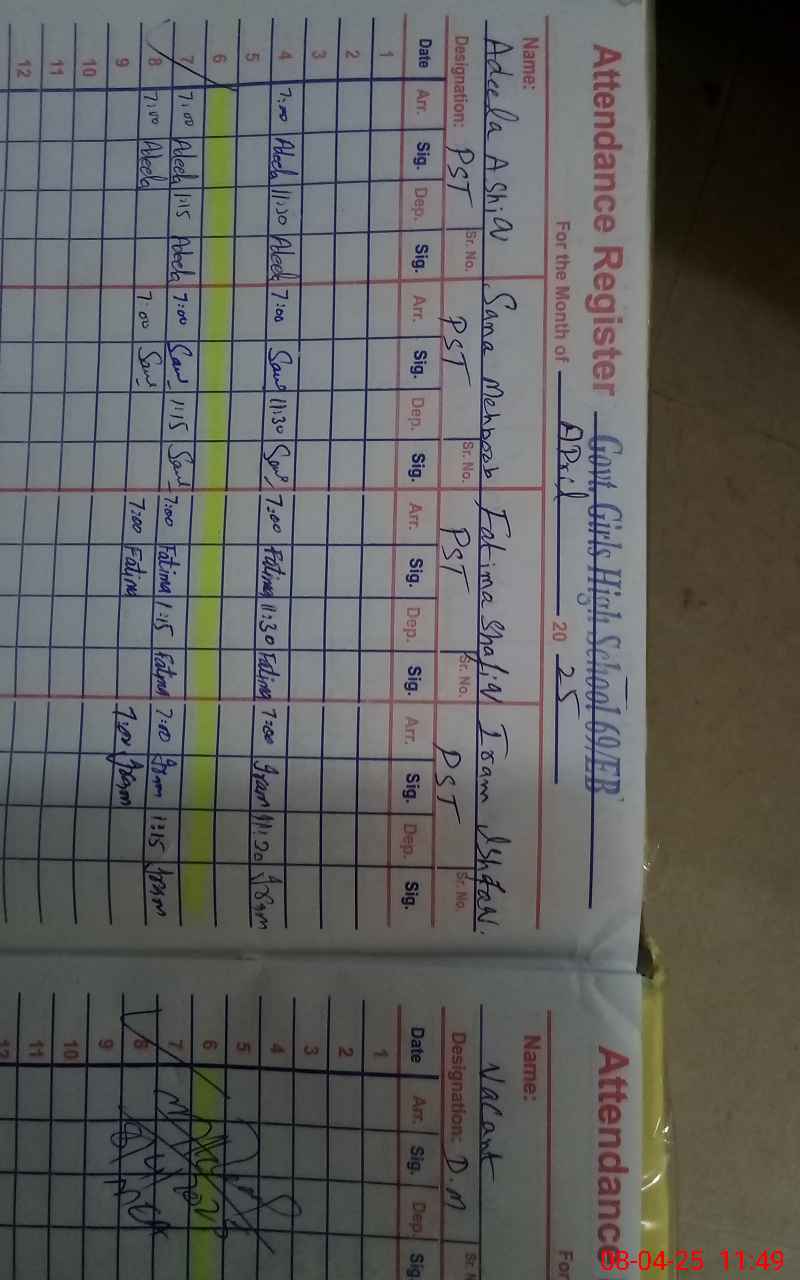 Attendance Register Govt. Girls High School 69/EB
For the Month of APril 20 25
Name: Adeela Ashiq Sana Mehboob Fatima Shafiq Iram Ishfaq.
Designation: PST Sr. No. PST Sr. No. PST Sr. No. PST Sr. No.
Date Arr. Sig. Dep. Sig. Arr. Sig. Dep. Sig. Arr. Sig. Dep. Sig. Arr. Sig. Dep. Sig.
1
2
3
4 7:00 Adeela 11:30 Adeela 7:00 11:30 7:00 Fatima 11:30 Fatima 7:00 Iram 11:30 Iram
5
6
7 7:00 Adeela 1:15 Adeela 7:00 1:15 7:00 Fatima 1:15 Fatima 7:00 Iram 1:15 Iram
8 7:00 Adeela 7:00 7:00 Fatima 7:00 Iram
9
10
11
12
Attendance
For
Name: Vacant
Designation: D.M Sr. N
Date Arr. Sig. Dep. Sig
1
2
3
4
5
6
7
8
9
10
11
12
08-04-25 11:49